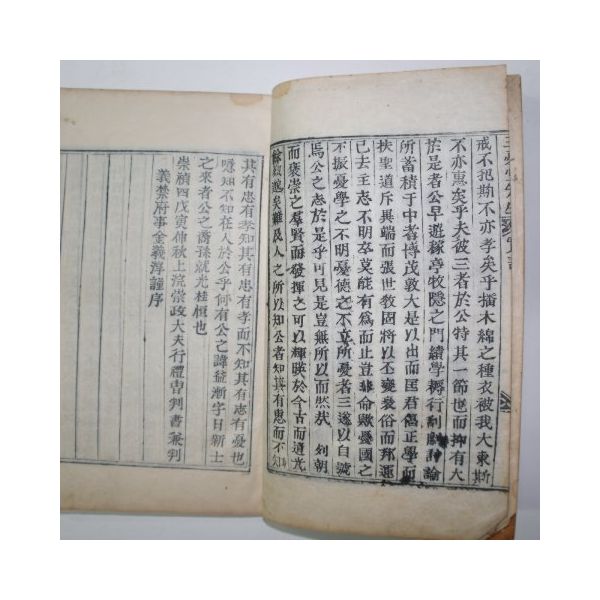 戒不犯斯不亦孝矣乎播木綿之種衣被我大東斯
不亦惠矣乎夫彼三者於公特其一節也而抑有大
於是者公早遊稼亭牧隱之門績學耨行剖劂評論
所蓄積于中者博茂敦大是以出而匡君倡正學而
扶聖道斥異端而張世教固將以丕變裘俗而那運
已去主志不明卒莫能有爲而止豈非命歟憂國之
不振憂學之不明憂德之不立所憂者三遂以自號
焉公之志於是乎可見是豈無所以而然哉 列朝
而褒崇之羣賢而發揮之可以輝暎於今古而遺光
餘矣難及人之所以知公者知其有惠而不知
其有忠有孝知其有忠有孝而不知其有志有憂也
噫知不知在人於公乎何有公之諱益漸字日新士
之來者公之裔孫就光桂恒也
崇禎四戊寅仲秋上浣崇政大夫行禮曺判書兼判
義禁府事金義淳謹序